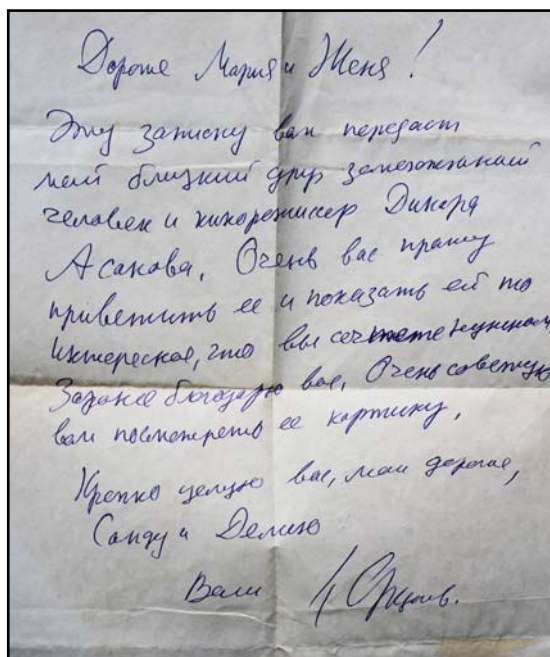 Дорогие Мария и Женя!
Эту записку вам передаст
мой близкий друг замечательный
человек и кинорежиссер Динара
Асанова. Очень вас прошу
приветить ее и показать ей то
интересное, что вы сочтете нужным.
Заранее благодарю вас. Очень советую
вам посмотреть ее картину.
Крепко целую вас, мои дорогие,
Санду и
Ваш